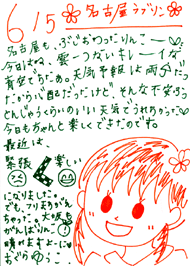 6/5 名古屋ラブリン
名古屋も、ぶじおわったりんこー
今日はね、雲一つないキレーイな
青空でしたあ。天気予報は雨だった
だから心配だったけど、そんな不安ふっ
とんじゃうくらいのいい天気でうれちかった
今日もちゃんと楽しくできたのです。
最近は、
緊張 < 楽しい
になりました
でも、フリまちがえ
ちゃった。大成長
がんばりんこ!
晴れますよーに
おぐら ゆうこ